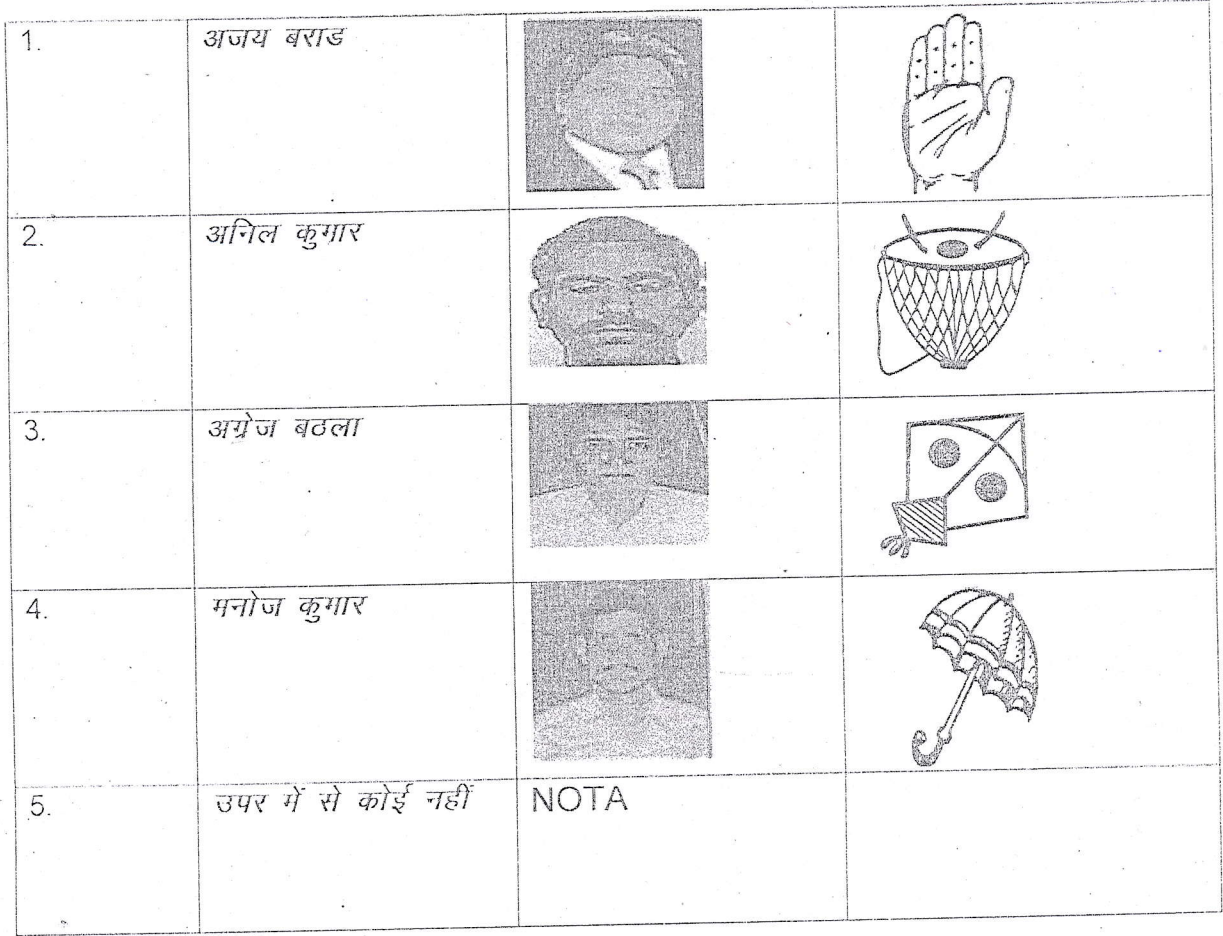 1. अजय बराड
2. अनिल कुमार
3. अग्रेज बठला
4. मनोज कुमार
5. उपर में से कोई नहीं NOTA